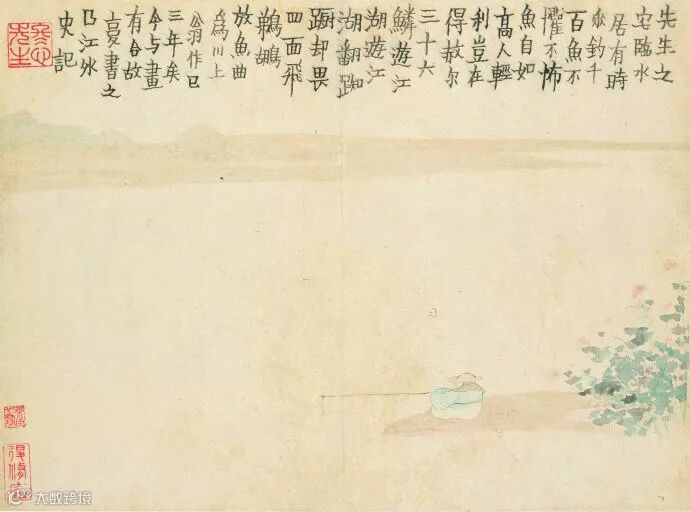 先生之
宅臨水
居有時
垂釣千
百魚不
懼不怖
魚自如
高人輕
利豈在
得赦尔
三十六
鱗遊江
湖遊江
湖翻踟
蹰却畏
四面飛
鵜鶘
放魚曲
為川上
翁作已
三年矣
今与畫
有合故
書之
江外
史記
冬心先生
大数跨境